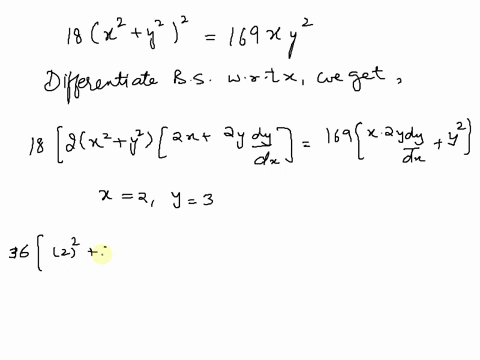 18(x² + y²)² = 169xy²
Differentiate B.S. w.r.t x, we get,
18[2(x² + y²)[2x + 2y dy/dx] = 169{x·2y dy/dx + y²}
x = 2, y = 3
36[(2)² +